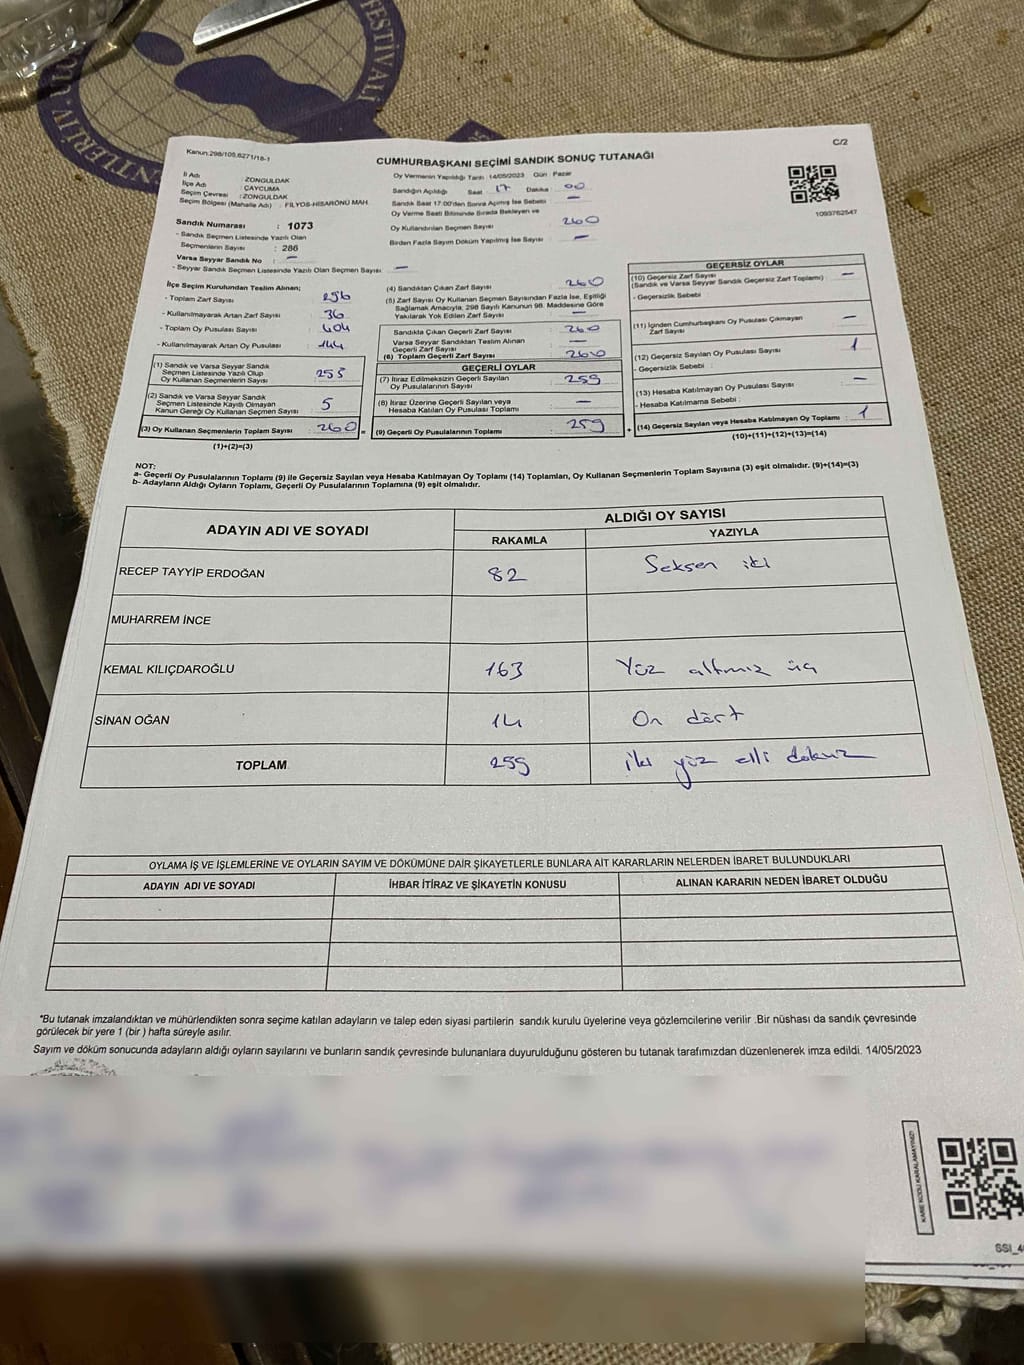 FESTİVALİ
Kanun:298/105,6271/18-1
C/2
CUMHURBAŞKANI SEÇİMİ SANDIK SONUÇ TUTANAĞI
İl Adı : ZONGULDAK
İlçe Adı : ÇAYCUMA
Seçim Çevresi : ZONGULDAK
Seçim Bölgesi (Mahalle Adı) : FİLYOS-HİSARÖNÜ MAH.
Oy Vermenin Yapıldığı Tarih 14/05/2023 Gün Pazar
Sandığın Açıldığı Saat 17 Dakika 00
Sandık Saat 17:00'den Sonra Açılmış İse Sebebi —
Oy Verme Saati Bitiminde Sırada Bekleyen ve
Oy Kullandırılan Seçmen Sayısı 260
Birden Fazla Sayım Döküm Yapılmış İse Sayısı : —
1093762547
Sandık Numarası : 1073
- Sandık Seçmen Listesinde Yazılı Olan
Seçmenlerin Sayısı : 286
Varsa Seyyar Sandık No : —
- Seyyar Sandık Seçmen Listesinde Yazılı Olan Seçmen Sayısı : —
İlçe Seçim Kurulundan Teslim Alınan;
- Toplam Zarf Sayısı : 296
- Kullanılmayarak Artan Zarf Sayısı : 36
- Toplam Oy Pusulası Sayısı : 404
- Kullanılmayarak Artan Oy Pusulası : 144
(1) Sandık ve Varsa Seyyar Sandık
Seçmen Listesinde Yazılı Olup
Oy Kullanan Seçmenlerin Sayısı : 255
(2) Sandık ve Varsa Seyyar Sandık
Seçmen Listesinde Kayıtlı Olmayan
Kanun Gereği Oy Kullanan Seçmen Sayısı : 5
(3) Oy Kullanan Seçmenlerin Toplam Sayısı : 260 =
(1)+(2)=(3)
(4) Sandıktan Çıkan Zarf Sayısı : 260
(5) Zarf Sayısı Oy Kullanan Seçmen Sayısından Fazla İse, Eşitliği
Sağlamak Amacıyla, 298 Sayılı Kanunun 98. Maddesine Göre
Yakılarak Yok Edilen Zarf Sayısı : —
Sandıkta Çıkan Geçerli Zarf Sayısı : 260
Varsa Seyyar Sandıktan Teslim Alınan
Geçerli Zarf Sayısı : —
(6) Toplam Geçerli Zarf Sayısı : 260
GEÇERLİ OYLAR
(7) İtiraz Edilmeksizin Geçerli Sayılan
Oy Pusulalarının Sayısı : 259
(8) İtiraz Üzerine Geçerli Sayılan veya
Hesaba Katılan Oy Pusulası Toplamı : —
(9) Geçerli Oy Pusulalarının Toplamı : 259 +
GEÇERSİZ OYLAR
(10) Geçersiz Zarf Sayısı : —
(Sandık ve Varsa Seyyar Sandık Geçersiz Zarf Toplamı)
- Geçersizlik Sebebi
(11) İçinden Cumhurbaşkanı Oy Pusulası Çıkmayan
Zarf Sayısı : —
(12) Geçersiz Sayılan Oy Pusulası Sayısı : 1
- Geçersizlik Sebebi :
(13) Hesaba Katılmayan Oy Pusulası Sayısı : —
- Hesaba Katılmama Sebebi :
(14) Geçersiz Sayılan veya Hesaba Katılmayan Oy Toplamı : 1
(10)+(11)+(12)+(13)=(14)
NOT:
a- Geçerli Oy Pusulalarının Toplamı (9) ile Geçersiz Sayılan veya Hesaba Katılmayan Oy Toplamı (14) Toplamları, Oy Kullanan Seçmenlerin Toplam Sayısına (3) eşit olmalıdır. (9)+(14)=(3)
b- Adayların Aldığı Oyların Toplamı, Geçerli Oy Pusulalarının Toplamına (9) eşit olmalıdır.
ADAYIN ADI VE SOYADI
ALDIĞI OY SAYISI
RAKAMLA YAZIYLA
RECEP TAYYİP ERDOĞAN 82 Seksen iki
MUHARREM İNCE
KEMAL KILIÇDAROĞLU 163 Yüz altmış üç
SİNAN OĞAN 14 On dört
TOPLAM 259 iki yüz elli dokuz
OYLAMA İŞ VE İŞLEMLERİNE VE OYLARIN SAYIM VE DÖKÜMÜNE DAİR ŞİKAYETLERLE BUNLARA AİT KARARLARIN NELERDEN İBARET BULUNDUKLARI
ADAYIN ADI VE SOYADI İHBAR İTİRAZ VE ŞİKAYETİN KONUSU ALINAN KARARIN NEDEN İBARET OLDUĞU
*Bu tutanak imzalandıktan ve mühürlendikten sonra seçime katılan adayların ve talep eden siyasi partilerin sandık kurulu üyelerine veya gözlemcilerine verilir .Bir nüshası da sandık çevresinde
görülecek bir yere 1 (bir ) hafta süreyle asılır.
Sayım ve döküm sonucunda adayların aldığı oyların sayılarını ve bunların sandık çevresinde bulunanlara duyurulduğunu gösteren bu tutanak tarafımızdan düzenlenerek imza edildi. 14/05/2023
KARE KODU KARALAMAYINIZ!